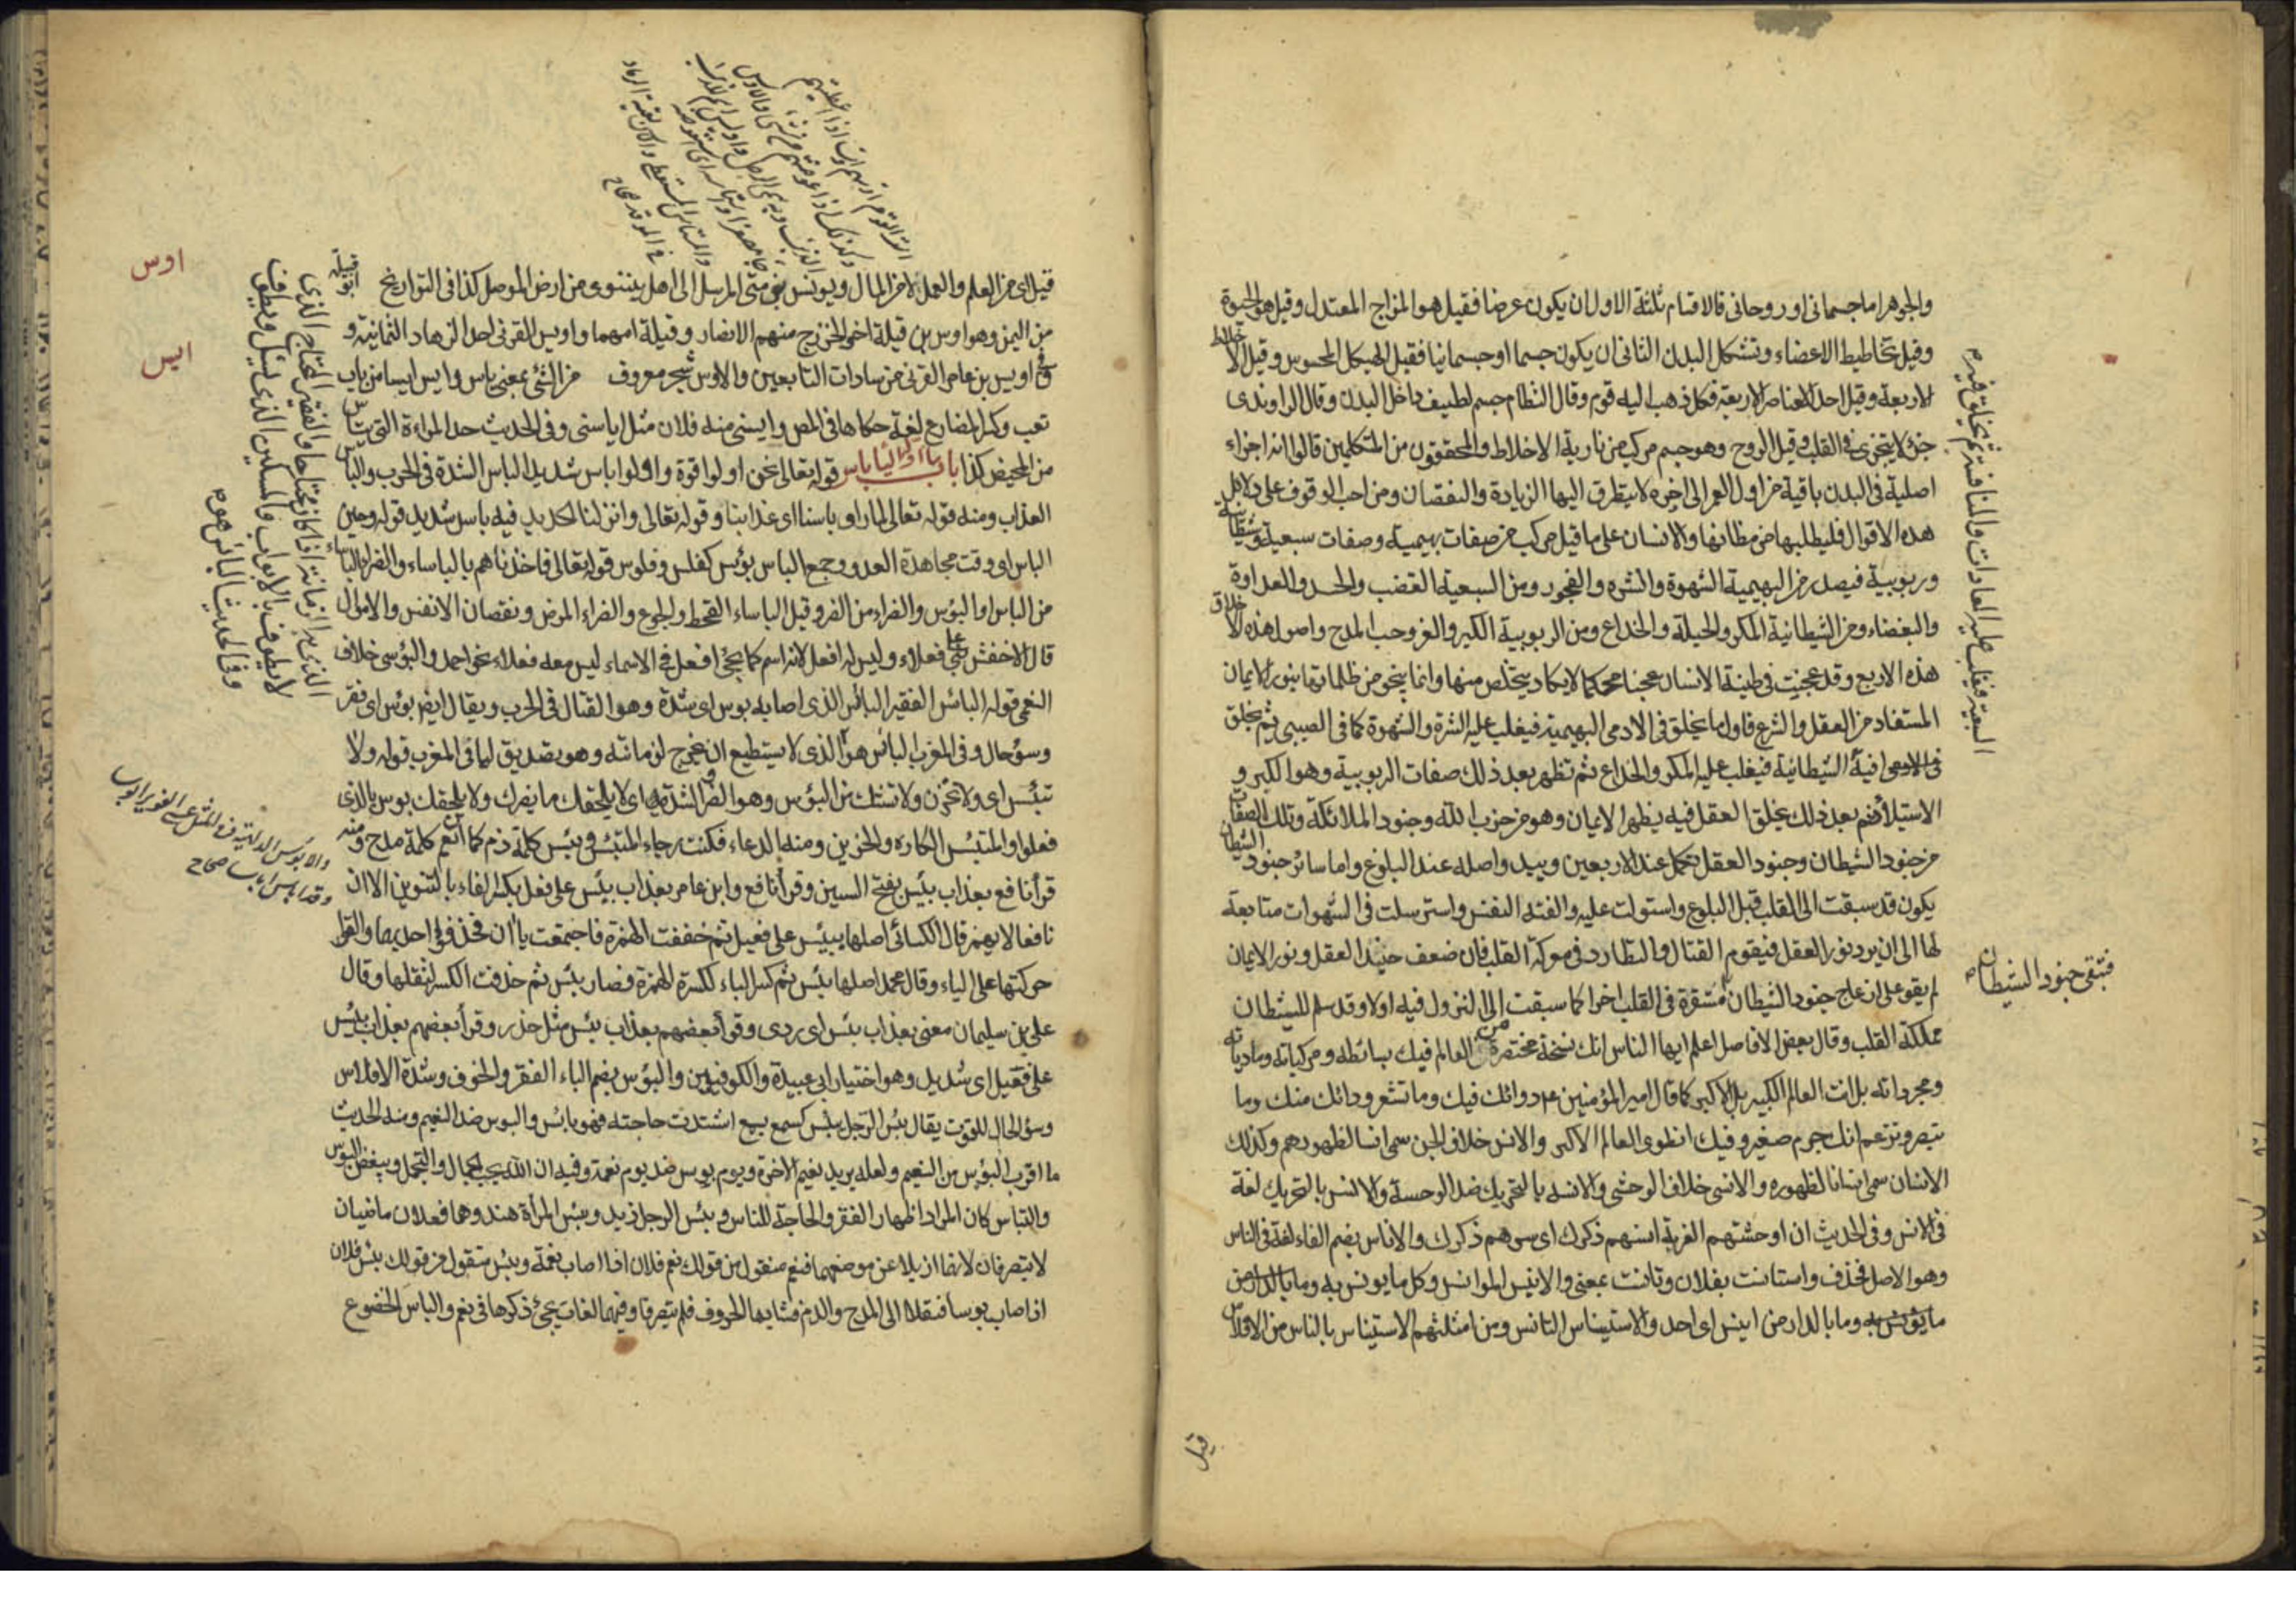 والجوهر اما جسمانى او روحانى فالاقسام ثلثة الاول ان يكون عرضا فقيل هو المزاج المعتدل وقيل هو الحيوة
وقيل تخاطيط الاعضاء وتشكل البدن الثانى ان يكون جسما او جسمانيا فقيل الهيكل المحسوس وقيل الاخلاط
الاربعة وقيل احد العناصر الاربعة فكل ذهب اليه قوم وقال النظام جسم لطيف داخل البدن وقال الراوندى
جزء لا يتجزى فى القلب وقيل الروح وهو جسم مركب من نارية الاخلاط والمحققون من المتكلمين قالوا انه اجزاء
اصلية فى البدن باقية من اول العمر الى اخره لا يتطرق اليها الزيادة والنقصان ومن احب الوقوف على دلائل
هذه الاقوال فليطلبها من مظانها والانسان على ما قيل مركب من صفات بهيمية وصفات سبعية وشيطانية
وربوبية فيصدر من البهيمية الشهوة والشره والفجور ومن السبعية الغضب والحسد والعداوة
والبغضاء ومن الشيطانية المكر والحيلة والخداع ومن الربوبية الكبر والعز وحب المدح واصول هذه الاخلاق
هذه الاربع وقد عجنت فى طينة الانسان عجنا محكما لا يكاد يتخلص منها وانما ينجو من ظلماتها بنور الايمان
المستفاد من العقل والشرع فاول ما يخلق فى الادمى البهيمية فيغلب عليه الشره والشهوة كما فى الصبى ثم يخلق
فيه الشيطانية فيغلب عليه المكر والخداع ثم تظهر بعد ذلك صفات الربوبية وهو الكبر و
الاستيلاء ثم بعد ذلك يخلق العقل فيه يظهر الايمان وهو من حزب الله وجنود الملائكة وتلك الصفات
من جنود الشيطان وجنود العقل تكمل عند الاربعين ويبد واصله عند البلوغ واما سائر جنود الشيطان
يكون قد سبقت الى القلب قبل البلوغ واستولت عليه والفته النفس واسترسلت فى الشهوات متابعة
لها الى ان يرد نور العقل فيقوم القتال والتطارد فى معركة القلب فان ضعف حنيد العقل ونور الايمان
لم يقو على ازعاج جنود الشيطان مستقرة فى القلب اخرا كما سبقت الى النزول فيه اولا وقد سلم للشيطان
مملكة القلب وقال بعض الافاضل اعلم ايها الناس انك نسخة مختصرة من العالم فيك بسائطه ومركباته ومادياته
ومجرداته بل انت العالم الكبير بل الاكبر كما قال امير المؤمنين ع دوائك فيك وما تشعر ودائك منك وما
تبصر وتزعم انك جرم صغير وفيك انطوى العالم الاكبر والانس خلاف الجن سمى انسا لظهورهم وكذلك
الانسان سمى انسانا لظهوره والانسى خلاف الوحشى والانسه بالتحريك ضد الوحسة والانس بالتحريك لغة
فى الانس وفى الحديث ان اوحشتهم الغربة انسهم ذكرك اى سرهم ذكرك والاناس بضم الفاء لغة فى الناس
وهو الاصل فخذف واستانست بفلان وتانست بمعنى والانيس الموانس وكل ما يونس به وما بالدار من
ما يونس به وما بالدار من انيس اى احد والاستيناس التانس ومن امثلتهم الاستيناس بالناس من الافلاس
السبعية فيغلب عليه العادات والمنافسة ثم يخلق فيه م
فتبقى جنود الشيطان م
قيل
قيل اى من العلم والعمل لا من المال ويونس بن متى المرسل الى اهل نينوى من ارض الموصل كذا فى التواريخ ابو قبيلة
من اليمن وهو اوس بن قيلة اخو الخزرج منهم الانصار وقيلة امهما واويس القرنى احد الزهاد الثمانية و
اويس بن عامر القرنى من سادات التابعين والاوس شجر معروف من الشئ بمعنى ياس وايس ايسا من باب
تعب وكسر المضارع لغة حكاها فى المص وايسنى منه فلان مثل اياسنى وفى الحديث حد المراءة التى يئس
من المحيض كذا باب ما اوله الباء باس قوله تعالى نحن اولوا قوة واولوا باس شديد الباس الشدة فى الحرب والباس
العذاب ومنه قوله تعالى لما راو باسنا اى عذابنا وقوله تعالى وانزلنا الحديد فيه باس شديد قوله وحين
الباس اى وقت مجاهدة العدو وجمع الباس بؤس كفلس وفلوس قوله تعالى فاخذناهم بالباساء والضراء الباساء
من الباس او البؤس والضراء من الضر وقيل الباساء القحط والجوع والضراء المرض ونقصان الانفس والاموال
قال الاخفش بنى على فعلاء وليس له افعل لانه اسم كما يجئ افعل فى الاسماء ليس معه فعلاء نحو احمد والبؤسى خلاف
النعمى قوله البائس الفقير البائس الذى اصابه بوس اى شدة وهو القتال فى الحرب ويقال ايضا بؤس اى فقر
وسؤ حال وفى المغرب البائس هو الذى لا يستطيع ان يخرج لزمانته وهو تصديق لما فى المغرب قوله ولا
تبتئس اى ولا تحزن ولا تشتك من البؤس وهو الضر والشدة اى لا يلحقك ما يضرك ولا يلحقك بوس بالذى
فعلوا والمبتئس الكاره والحزين ومنه الدعاء فكنت رجاء المبتئس وبئس كلمة ذم كما ان نعم كلمة مدح ومنه
قرأ نافع بعذاب بئيس بفتح السين وقرأ نافع وابن عامر بعذاب بئس على فعل بكسر الفاء بالتنوين الا ان
نافعا لا يهمز قال الكسائى اصلها بيئس على فعيل ثم خففت الهمزة فاجتمعت ياآن فخذفوا احديهما والقوا
حركتها على الياء وقال محمد اصلها بئس ثم كسر الباء لكسرة الهمزة فصار بئس ثم حذفت الكسر لثقلها وقال
على بن سليمان معنى بعذاب بئس اى ردى وقرأ بعضهم بعذاب بئس مثل حذر وقرأ بعضهم بعذاب بيئس
على فيعل اى شديد وهو اختيار ابى عبيدة والكوفيين والبؤس بضم الباء الفقر والخوف وشدة الافلاس
وسؤ الحال للقوت يقال بئس الرجل يبئس كسمع يسمع اشتدت حاجته فهو بائس والبوس ضد النعيم ومنه الحديث
ما اقرب البؤس من النعيم ولعله يريد نعيم الاخرة ويوم بوس ضد يوم نعمة وفيه ان الله يحب الجمال والتجمل ويبغض البؤس
والتباس كان المراد اظهار الفقر والحاجة للناس وبئس الرجل زيد وبئس المرأة هند وهما فعلان ماضيان
لا يتصرفان لانهما ازيلا عن موضعهما فنعم منقول من قولك نعم فلان اذا اصاب نعمة وبئس منقول من قولك بئس فلان
اذا صاب بوسا فنقلا الى المدح والذم فشابها الحروف فلم يتصرفا وفيهما لغات يجئ ذكرها فى نعم والباس الخضوع
اوس
ايس
الذى به الزمانة اذا كان محتاجا والفقير المحتاج الذى
لا يطوف بالابواب والمسكين الذى يسئل ويطوف
وفى الحديث البائس هو م